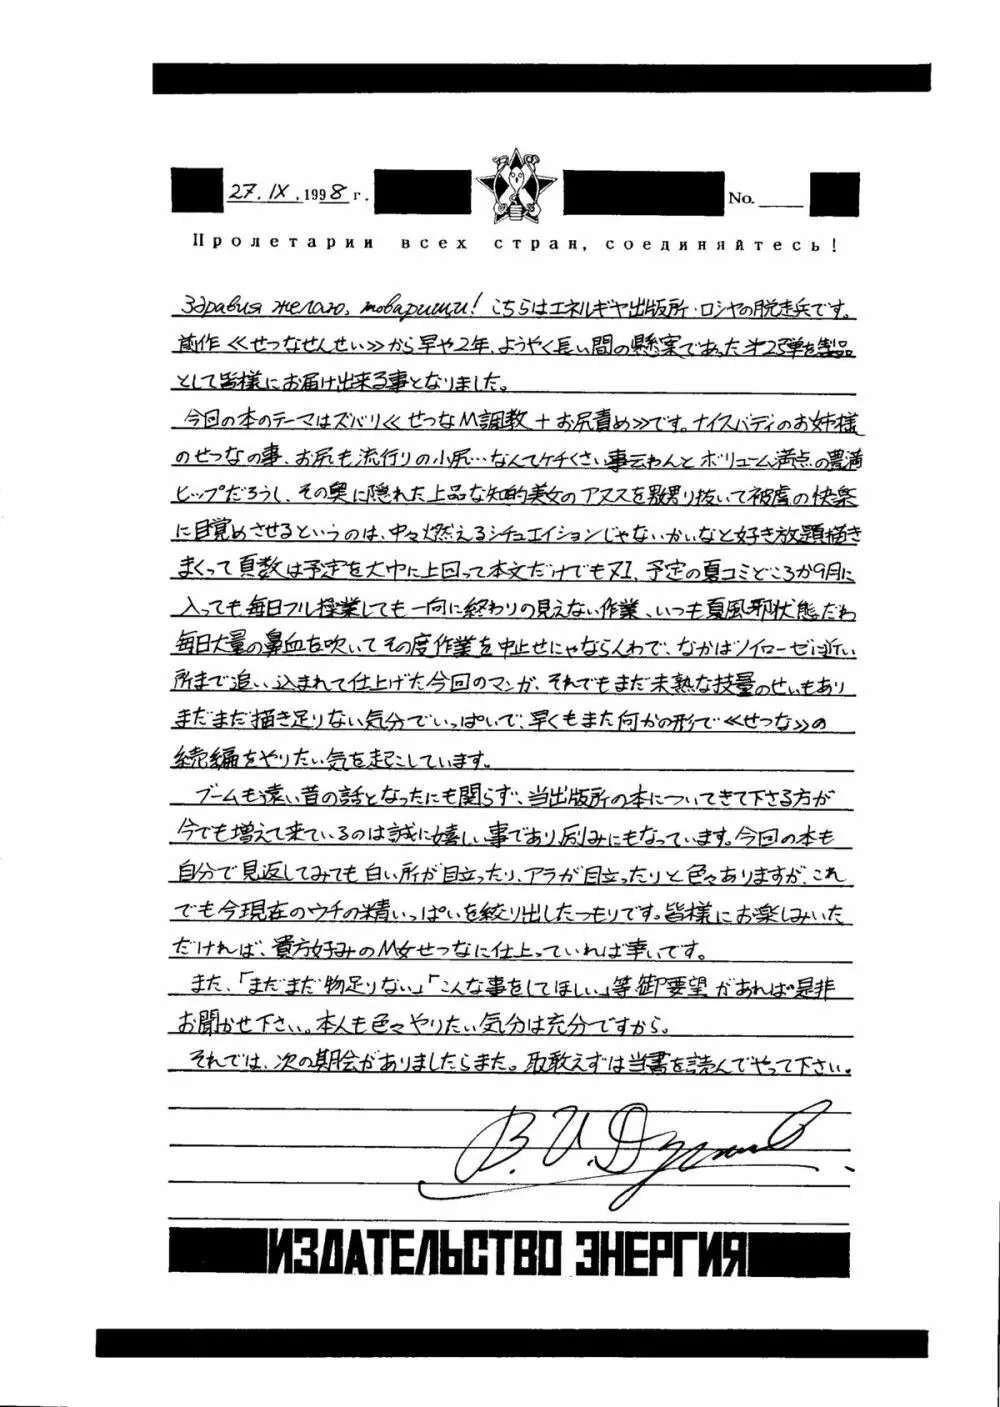 27.IX.1998 г.
No.
Пролетарии всех стран, соединяйтесь!
Здравия желаю, товарищи! こちらはエネルギヤ出版所・ロシヤの脱走兵です。
前作≪せつなせんせい≫から早や2年、ようやく長い間の懸案であった才2弾を製品
として皆様にお届け出来る事となりました。
今回の本のテーマはズバリ≪せつなM調教+お尻責め≫です。ナイスバディのお姉様
のせつなの事、お尻も流行りの小尻…なんてケチくさい事云わんとボリューム満点の豊満
ヒップだろうし、その奥に隠れた上品な知的美女のアヌスを嬲り抜いて被虐の快楽
に目覚めさせるというのは、中々燃えるシチュエイションじゃないかいなと好き放題描き
まくって頁数は予定を大巾に上回って本文だけでも、予定の夏コミどころか9月に
入っても毎日フル操業しても一向に終わりの見えない作業、いつも夏風邪状態だわ
毎日大量の鼻血を吹いてその度作業を中止せにゃならんわで、なかばノイローゼに近い
所まで追い込まれて仕上げた今回のマンガ、それでもまだ未熟な技量のせいもあり
まだまだ描き足りない気分でいっぱいで、早くもまた何かの形で≪せつな≫の
続編をやりたい気を起こしています。
ブームも遠い昔の話となったにも関らず、当出版所の本についてきて下さる方が
今でも増えて来ているのは誠に嬉しい事であり励みにもなっています。今回の本も
自分で見返してみても白い所が目立ったり、アラが目立ったりと色々ありますが、これ
でも今現在のウチの精いっぱいを絞り出したつもりです。皆様にお楽しみいた
だければ、貴方好みのM女せつなに仕上っていれば幸いです。
また、「まだまだ物足りない」「こんな事をしてほしい」等御要望があれば是非
お聞かせ下さい。本人も色々やりたい気分は充分ですから。
それでは、次の期会がありましたらまた。取敢えずは当書を読んでやって下さい。
В.И.
ИЗДАТЕЛЬСТВО ЭНЕРГИЯ